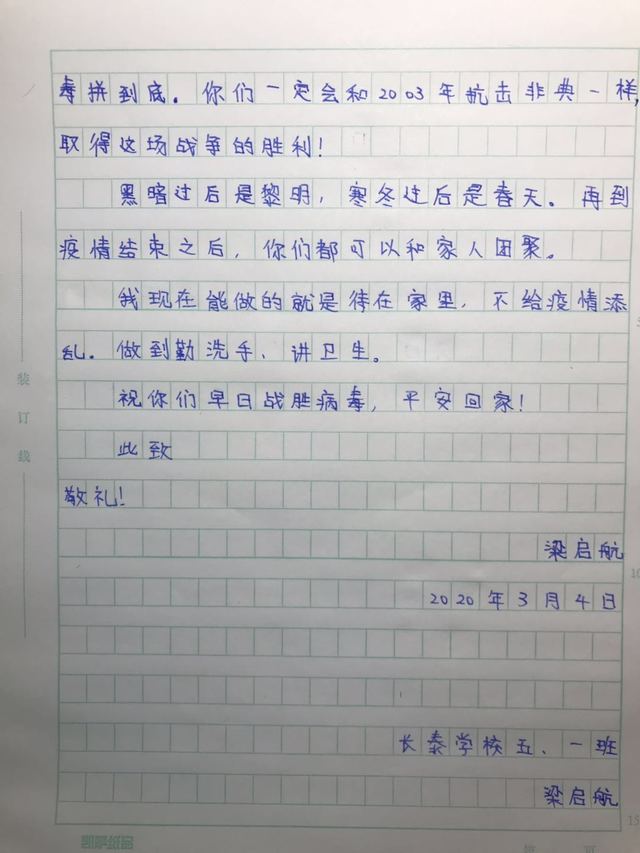 毒拼到底。你们一定会和2003年抗击非典一样,
取得这场战争的胜利!
黑暗过后是黎明，寒冬过后是春天。再到
疫情结束之后，你们都可以和家人团聚。
我现在能做的就是待在家里，不给疫情添
乱。做到勤洗手、讲卫生。
祝你们早日战胜病毒，平安回家!
此致
敬礼!
梁启航
2020年3月4日
长泰学校五、一班
梁启航
装
订
线
10
15